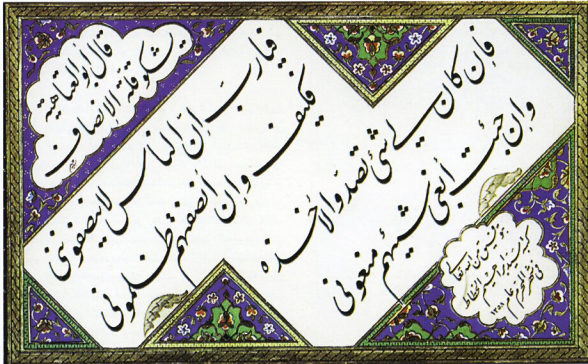 قال أبو العتاهية
يشكو قلة الإنصاف
فيارب إن الناس لاينصفونني
فكيف وإن أنصفتهم ظلموني
فإن كان لي شئ تصدوا لأخذه
وإن جئت أبغي شيئهم منعوني